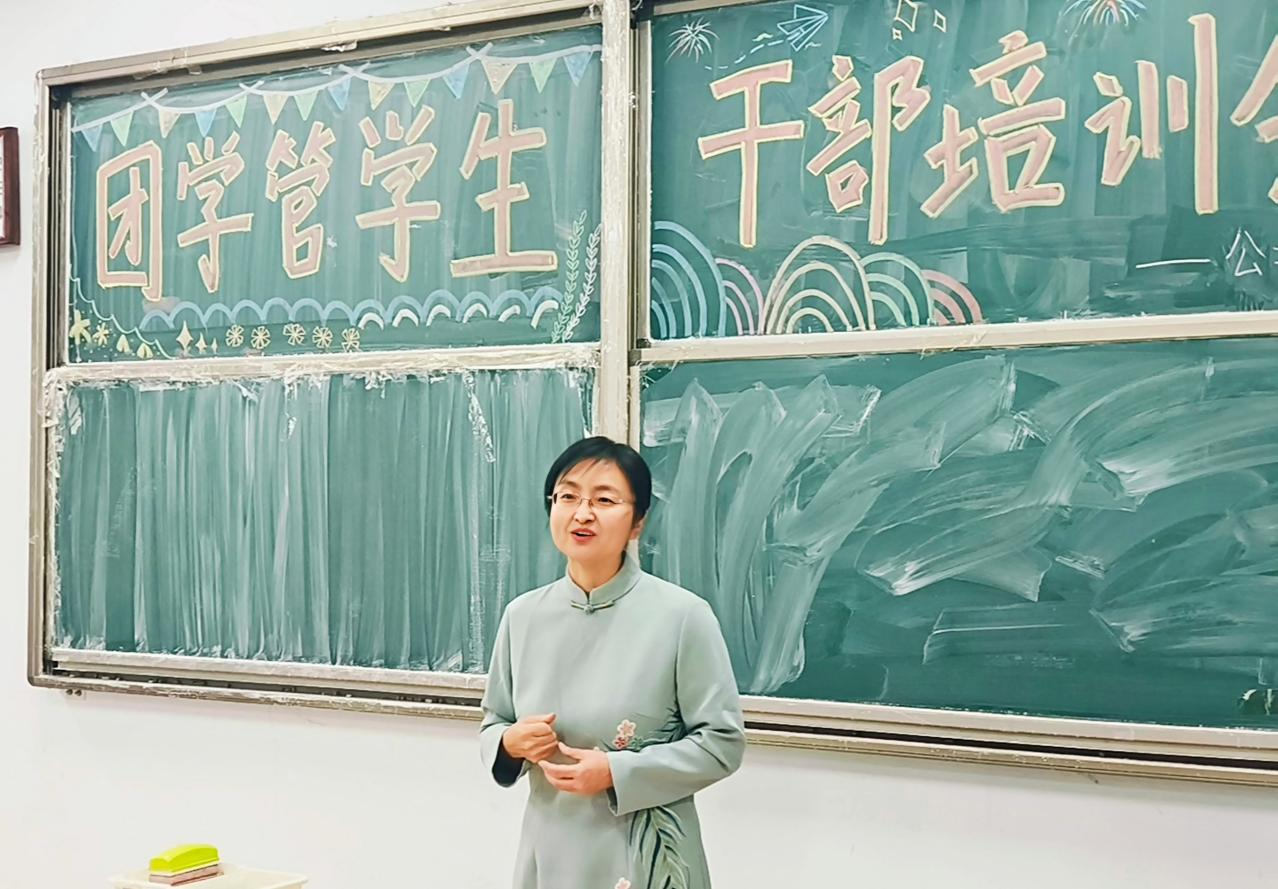 团学管学生干部培训会
一公